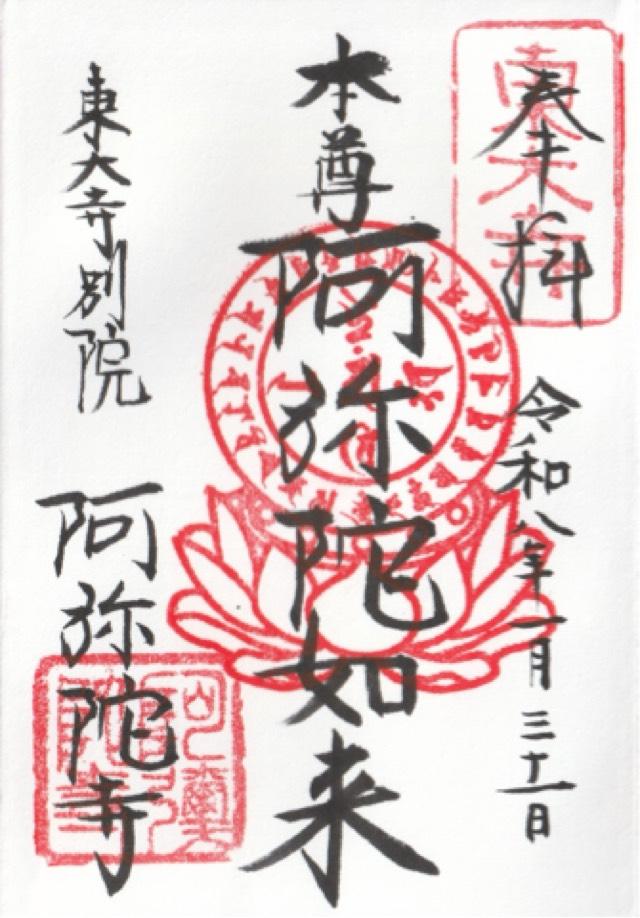 奉拝
令和八年一月三十一日
本尊阿弥陀如来
東大寺別院
阿弥陀寺
東大寺